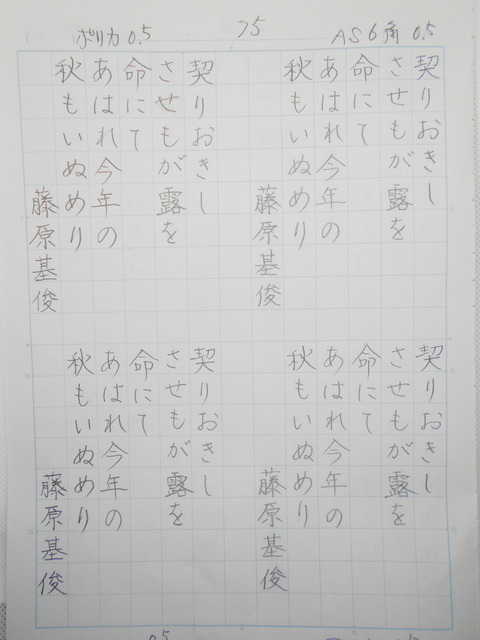 AS6角 0.5
75
ポリカ 0.5
契りおきし
させもが露を
命にて
あはれ今年の
秋もいぬめり
藤原基俊
契りおきし
させもが露を
命にて
あはれ今年の
秋もいぬめり
藤原基俊
契りおきし
させもが露を
命にて
あはれ今年の
秋もいぬめり
藤原基俊
契りおきし
させもが露を
命にて
あはれ今年の
秋もいぬめり
藤原基俊